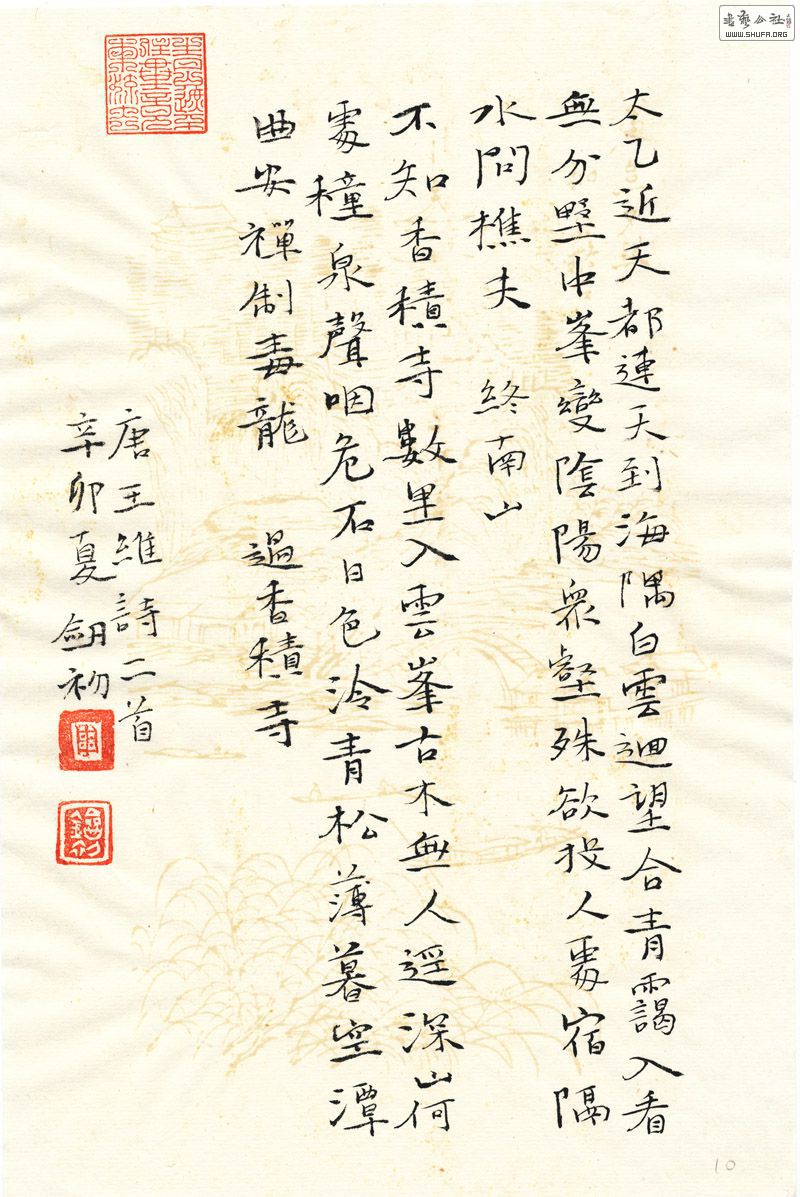 書藝公社
WWW.SHUFA.ORG
太乙近天都連天到海隅白雲迴望合青靄入看
無分野中峯變陰陽衆壑殊欲投人處宿隔
水問樵夫 終南山
不知香積寺數里入雲峯古木無人逕深山何
處穜泉聲咽危石日色泠青松薄暮空潭
曲安禪制毒龍 過香積寺
唐王維詩二首
辛卯夏劒初
10